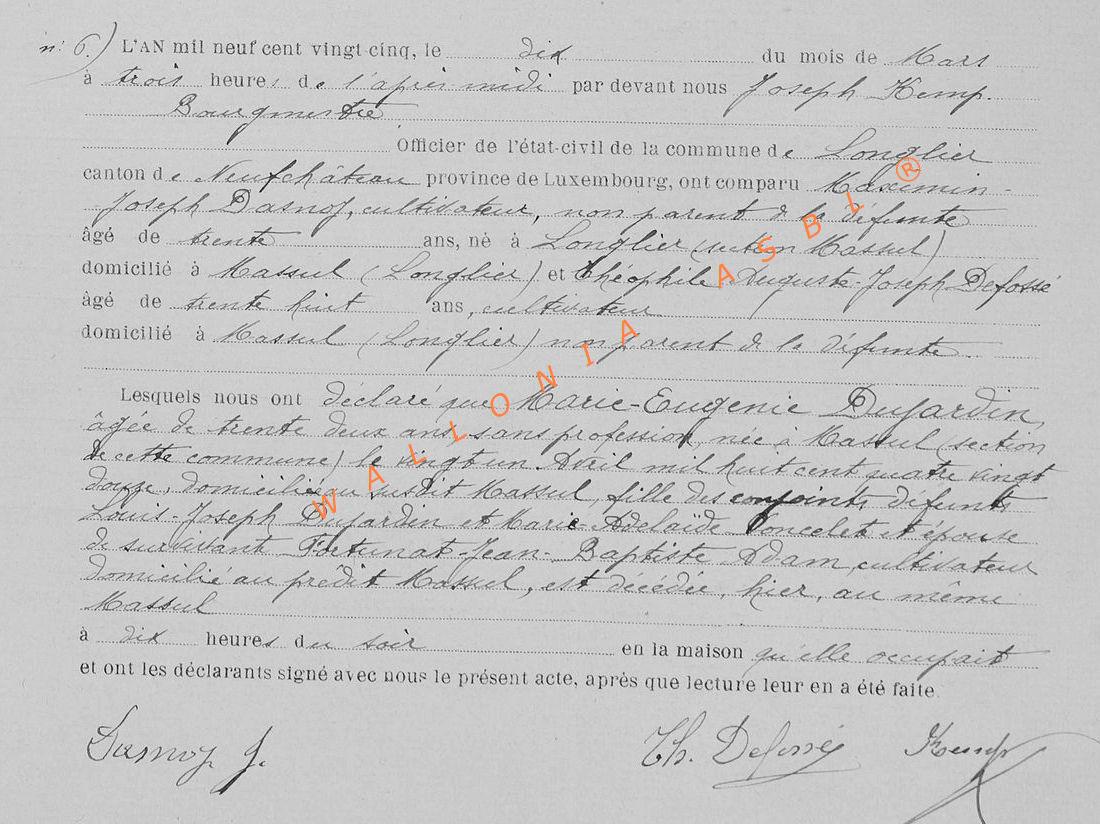 n° 6.) L'AN mil neuf cent vingt-cinq, le dix du mois de Mars
à trois heures de l'après midi par devant nous Joseph Kemp.
Bourgmestre
Officier de l'état-civil de la commune de Longlier
canton de Neufchâteau province de Luxembourg, ont comparu Maximin-
Joseph Dasnoy, cultivateur, non parent de la défunte
âgé de trente ans, né à Longlier (section Massul)
domicilié à Massul (Longlier) et Théophile Auguste-Joseph Defossé
âgé de trente huit ans, cultivateur
domicilié à Massul (Longlier) non parent de la défunte
Lesquels nous ont déclaré que Marie-Eugenie Dujardin,
âgée de trente deux ans, sans profession, née à Massul section
de cette commune) le vingt un Avril mil huit cent quatre vingt
douze, domiciliée au susdit Massul, fille des conjoints défunts
Louis-Joseph Dujardin et Marie-Adelaïde Poncelet et épouse
de survivant Fortunat-Jean-Baptiste Adam, cultivateur
domicilié au predit Massul, est décédée, hier, au même
Massul
à dix heures du soir en la maison qu'elle occupait
et ont les déclarants signé avec nous le présent acte, après que lecture leur en a été faite.
Dasnoy J. Th. Defossé Kemp
WALLONIA ASBL ®